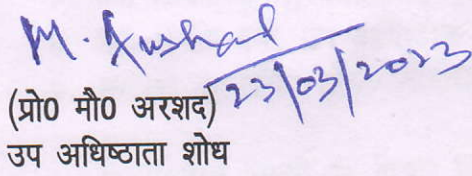 M. Arshad
23/03/2023
(प्रो0 मौ0 अरशद)
उप अधिष्ठाता शोध